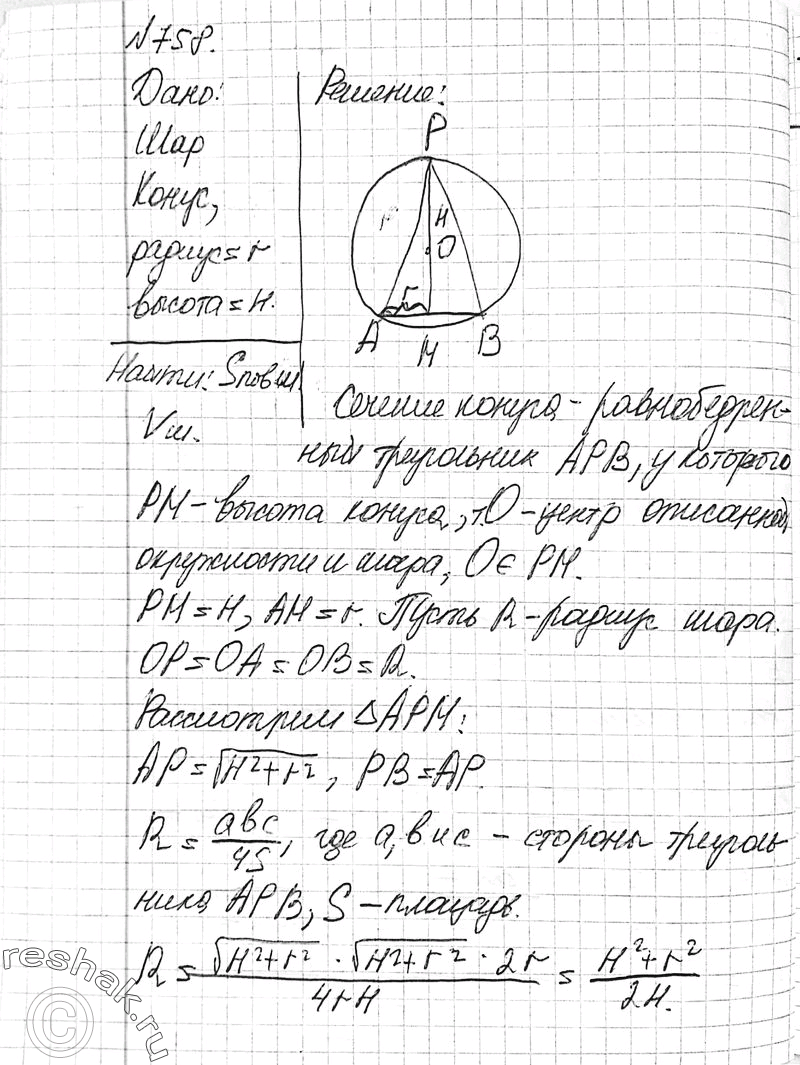 N758.
Дано:
Шар
Конус,
радиус = r
высота = H.
Найти: Sпов ш.
Vш.
Решение:
P
H
O
r
A
M
B
Сечение конуса - равнобедрен-
ный треугольник APB, у которого
PM - высота конуса, т.O - центр описанной
окружности и шара, O ∈ PM.
PM = H, AM = r. Пусть R - радиус шара.
OP = OA = OB = R.
Рассмотрим △APM:
AP = √(H²+r²), PB = AP.
R = abc/4S, где a, b и c - стороны треуголь-
ника APB, S - площадь.
R = (√(H²+r²) · √(H²+r²) · 2r)/(4rH) = (H²+r²)/(2H).
reshak.ru
©